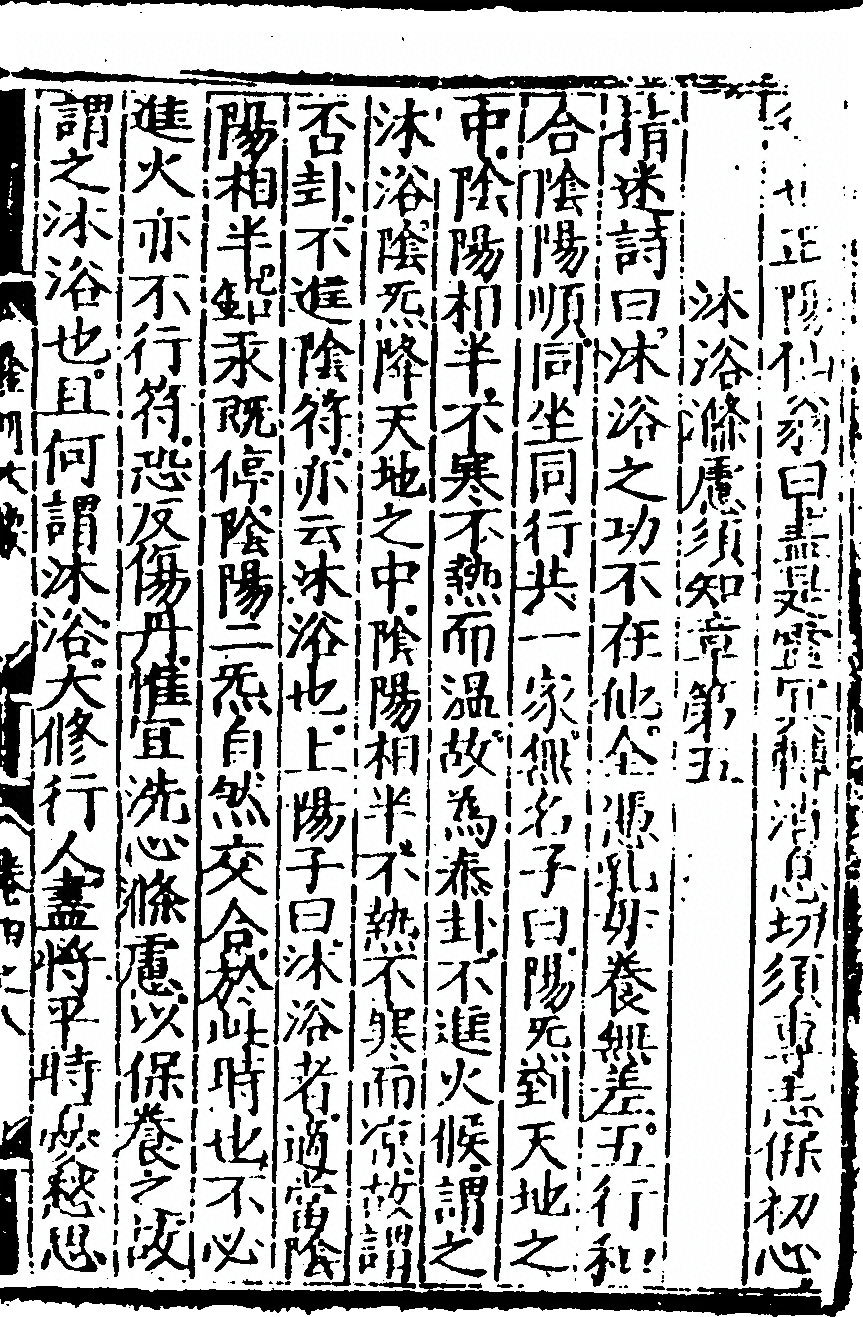 也正陽仙翁曰盡是靈冥轉消息切須專志保初心
沐浴滌慮須知章第五
指迷詩曰沐浴之功不在他全憑乳母養無差五行和
合陰陽順同坐同行共一家無名子曰陽炁到天地之
中陰陽相半不寒不熱而温故為泰卦不進火候謂之
沐浴陰炁降天地之中陰陽相半不熱不寒而凉故謂
否卦不進陰符亦云沐浴也上陽子曰沐浴者適當陰
陽相半鉛汞既停陰陽二炁自然交合於此時也不必
進火亦不行符恐反傷丹惟宜洗心滌慮以保養之故
謂之沐浴也且何謂沐浴大修行人盡將平時愁思